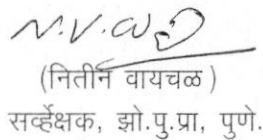 (नितीन वायचळ)
सर्व्हेक्षक, झो.पु.प्रा, पुणे.